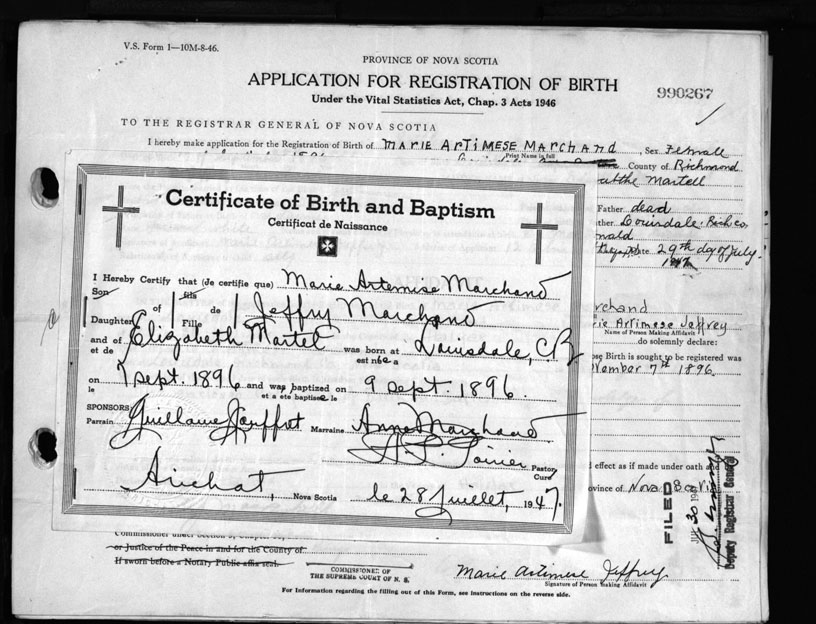 V.S. Form 1—10M-8-46.
PROVINCE OF NOVA SCOTIA
APPLICATION FOR REGISTRATION OF BIRTH
990267
Under the Vital Statistics Act, Chap. 3 Acts 1946
TO THE REGISTRAR GENERAL OF NOVA SCOTIA
I hereby make application for the Registration of Birth of MARIE ARTIMESE MARCHAND, Sex Female
Print Name in full
County of Richmond
Martell
Father dead
Louisdale. Rich co.
29th day of July
Certificate of Birth and Baptism
Certificat de Naissance
I Hereby Certify that (de certifie que) Marie Artemise Marchand
Son
of fils de Jeffry Marchand
Daughter Fille
and of Elizabeth Martel was born at Louisdale, C.B.
et de est née a
on 7 Sept. 1896 and was baptized on 9 Sept. 1896.
le et a ete baptisee le
SPONSORS
Parrain Guillaume Marraine Anne Marchand
A. Poirier Pastor
Curé
Arichat, Nova Scotia le 28 Juillet, 1947.
rchand
rie Artimese Jeffrey
Name of Person Making Affidavit
do solemnly declare:
se Birth is sought to be registered was
vember 7th 1896.
d effect as if made under oath and
ovince of Nova Scotia
FILED
30
Deputy Registrar General
or Justice of the Peace in and for the County of
If sworn before a Notary Public affix seal.
COMMISSIONER OF
THE SUPREME COURT OF N. S.
Marie Artimese Jeffrey
Signature of Person Making Affidavit
For Information regarding the filling out of this Form, see instructions on the reverse side.